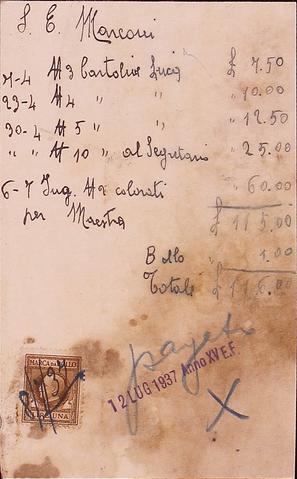 S. E. Marconi
21-4 N 3 Cartoline Luce £ 7.50
23-4 N 4 " " " 10.00
30-4 N 5 " " " 12.50
" " N 10 " al Segretario " 25.00
6-7 Ing. N 2 colorati " 60.00
per Maestra £ 115.00
Bollo " 1.00
Totale £ 116.00
pagato
12 LUG 1937 Anno XV E.F.
X
MARCA DA BOLLO